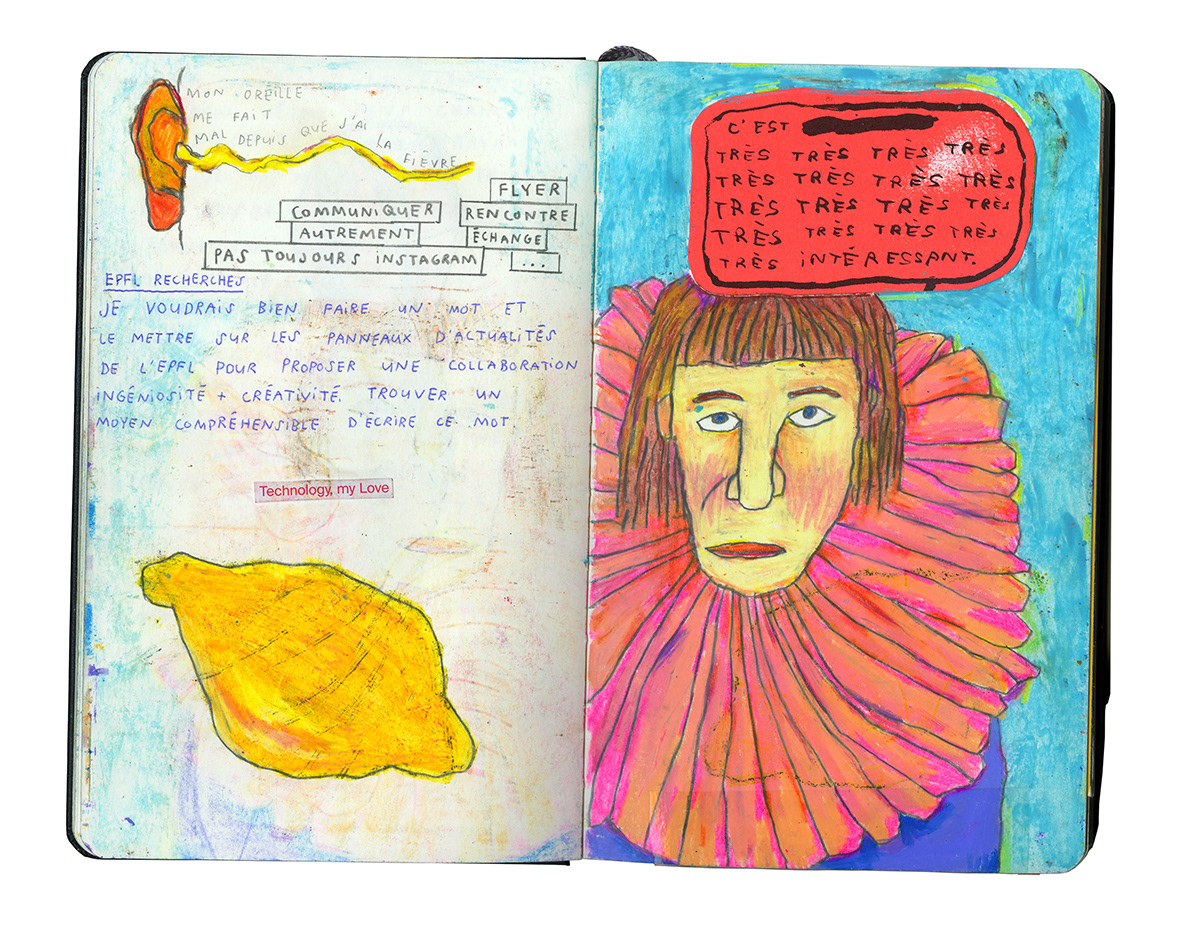 MON OREILLE
ME FAIT
MAL DEPUIS QUE J'AI LA FIÈVRE
FLYER
COMMUNIQUER
RENCONTRE
AUTREMENT
ÉCHANGE
PAS TOUJOURS INSTAGRAM
...
EPFL RECHERCHES
JE VOUDRAIS BIEN FAIRE UN MOT ET
LE METTRE SUR LES PANNEAUX D'ACTUALITÉS
DE L'EPFL POUR PROPOSER UNE COLLABORATION
INGÉNIOSITÉ + CRÉATIVITÉ. TROUVER UN
MOYEN COMPRÉHENSIBLE D'ÉCRIRE CE MOT.
Technology, my Love
C'EST
TRÈS TRÈS TRÈS TRÈS
TRÈS TRÈS TRÈS TRÈS
TRÈS TRÈS TRÈS TRÈS
TRÈS TRÈS TRÈS TRÈS
TRÈS INTÉRESSANT.